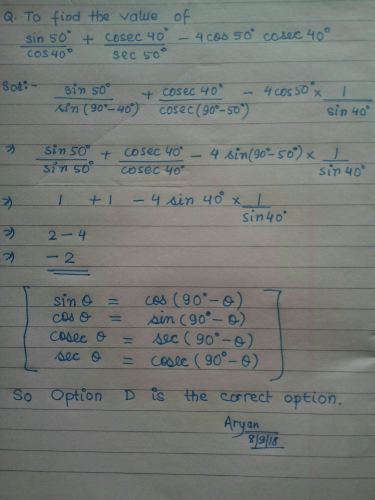 Q. To find the value of
sin 50°/cos 40° + cosec 40°/sec 50° − 4cos 50° cosec 40°
Sol:- sin 50°/sin (90°−40°) + cosec 40°/cosec (90°−50°) − 4cos 50° × 1/sin 40°
⇒) sin 50°/sin 50° + cosec 40°/cosec 40° − 4 sin(90°−50°) × 1/sin 40°
⇒) 1 + 1 − 4 sin 40° × 1/sin 40°
⇒) 2 − 4
⇒) − 2
[ sin θ = cos (90° − θ)
cos θ = sin (90° − θ)
cosec θ = sec (90° − θ)
sec θ = cosec (90° − θ) ]
So Option D is the correct option.
Aryan
8/9/18